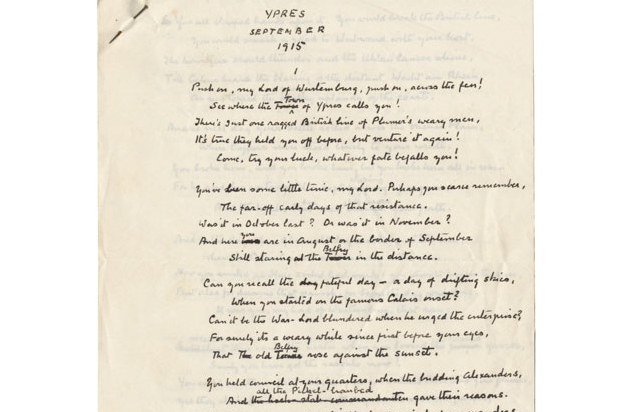 YPRES
SEPTEMBER
1915
1
Push on, my Lord of Wurtemburg, push on, across the fen!
See where the Tower Town of Ypres calls you!
There's just one ragged British line of Plumer's weary men,
It's true they held you off before, but venture it again!
Come, try your luck, whatever fate befalls you!
You've been some little time, my Lord. Perhaps you scarce remember,
The far-off early days of that resistance.
Was it in October last? Or was it in November?
And here you are in August or the border of September
Still staring at the Tower Belfry in the distance.
Can you recall the day fateful day – a day of drifting skies,
When you started on the famous Calais onset?
Can't be the War-Lord blundered when he urged the enterprise?
For surely its a weary while since first before your eyes,
That The old Tower Belfry rose against the sunset.
You held council at your quarters, when the budding Alexanders,
all the Pickel-haubed
And the gave their reasons.